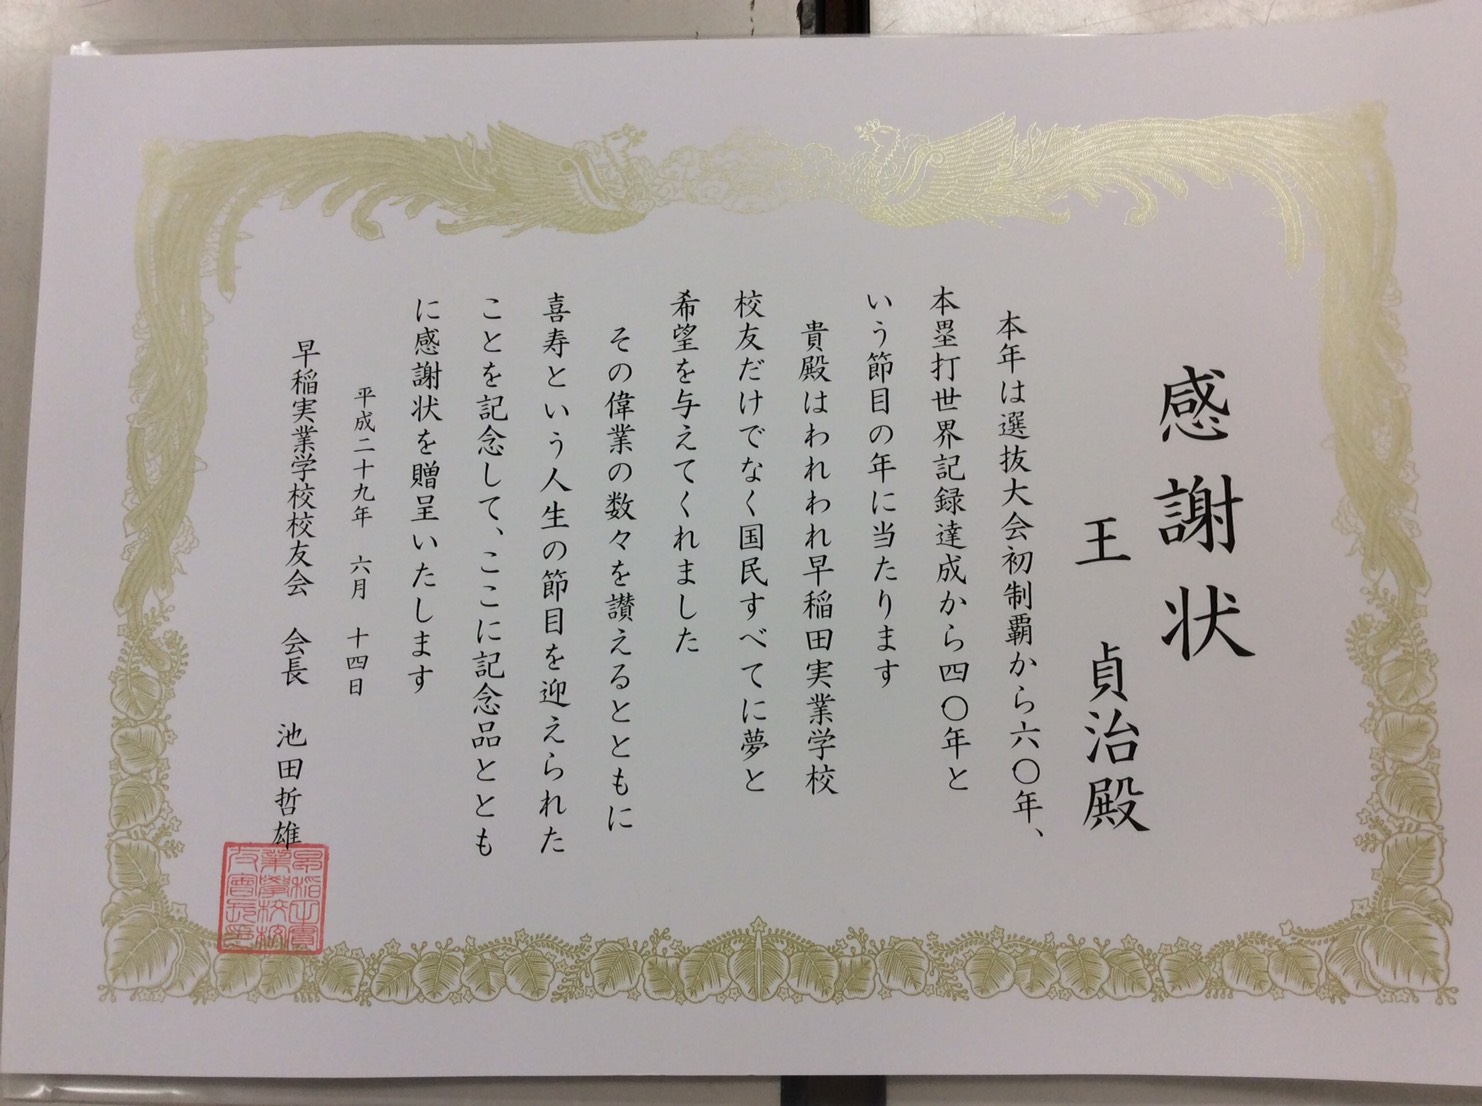 感謝状
王 貞治殿
本年は選抜大会初制覇から六〇年、
本塁打世界記録達成から四〇年と
いう節目の年に当たります
貴殿はわれわれ早稲田実業学校
校友だけでなく国民すべてに夢と
希望を与えてくれました
その偉業の数々を讃えるとともに
喜寿という人生の節目を迎えられた
ことを記念して、ここに記念品ととも
に感謝状を贈呈いたします
平成二十九年 六月 十四日
早稲実業学校校友会 会長 池田哲雄